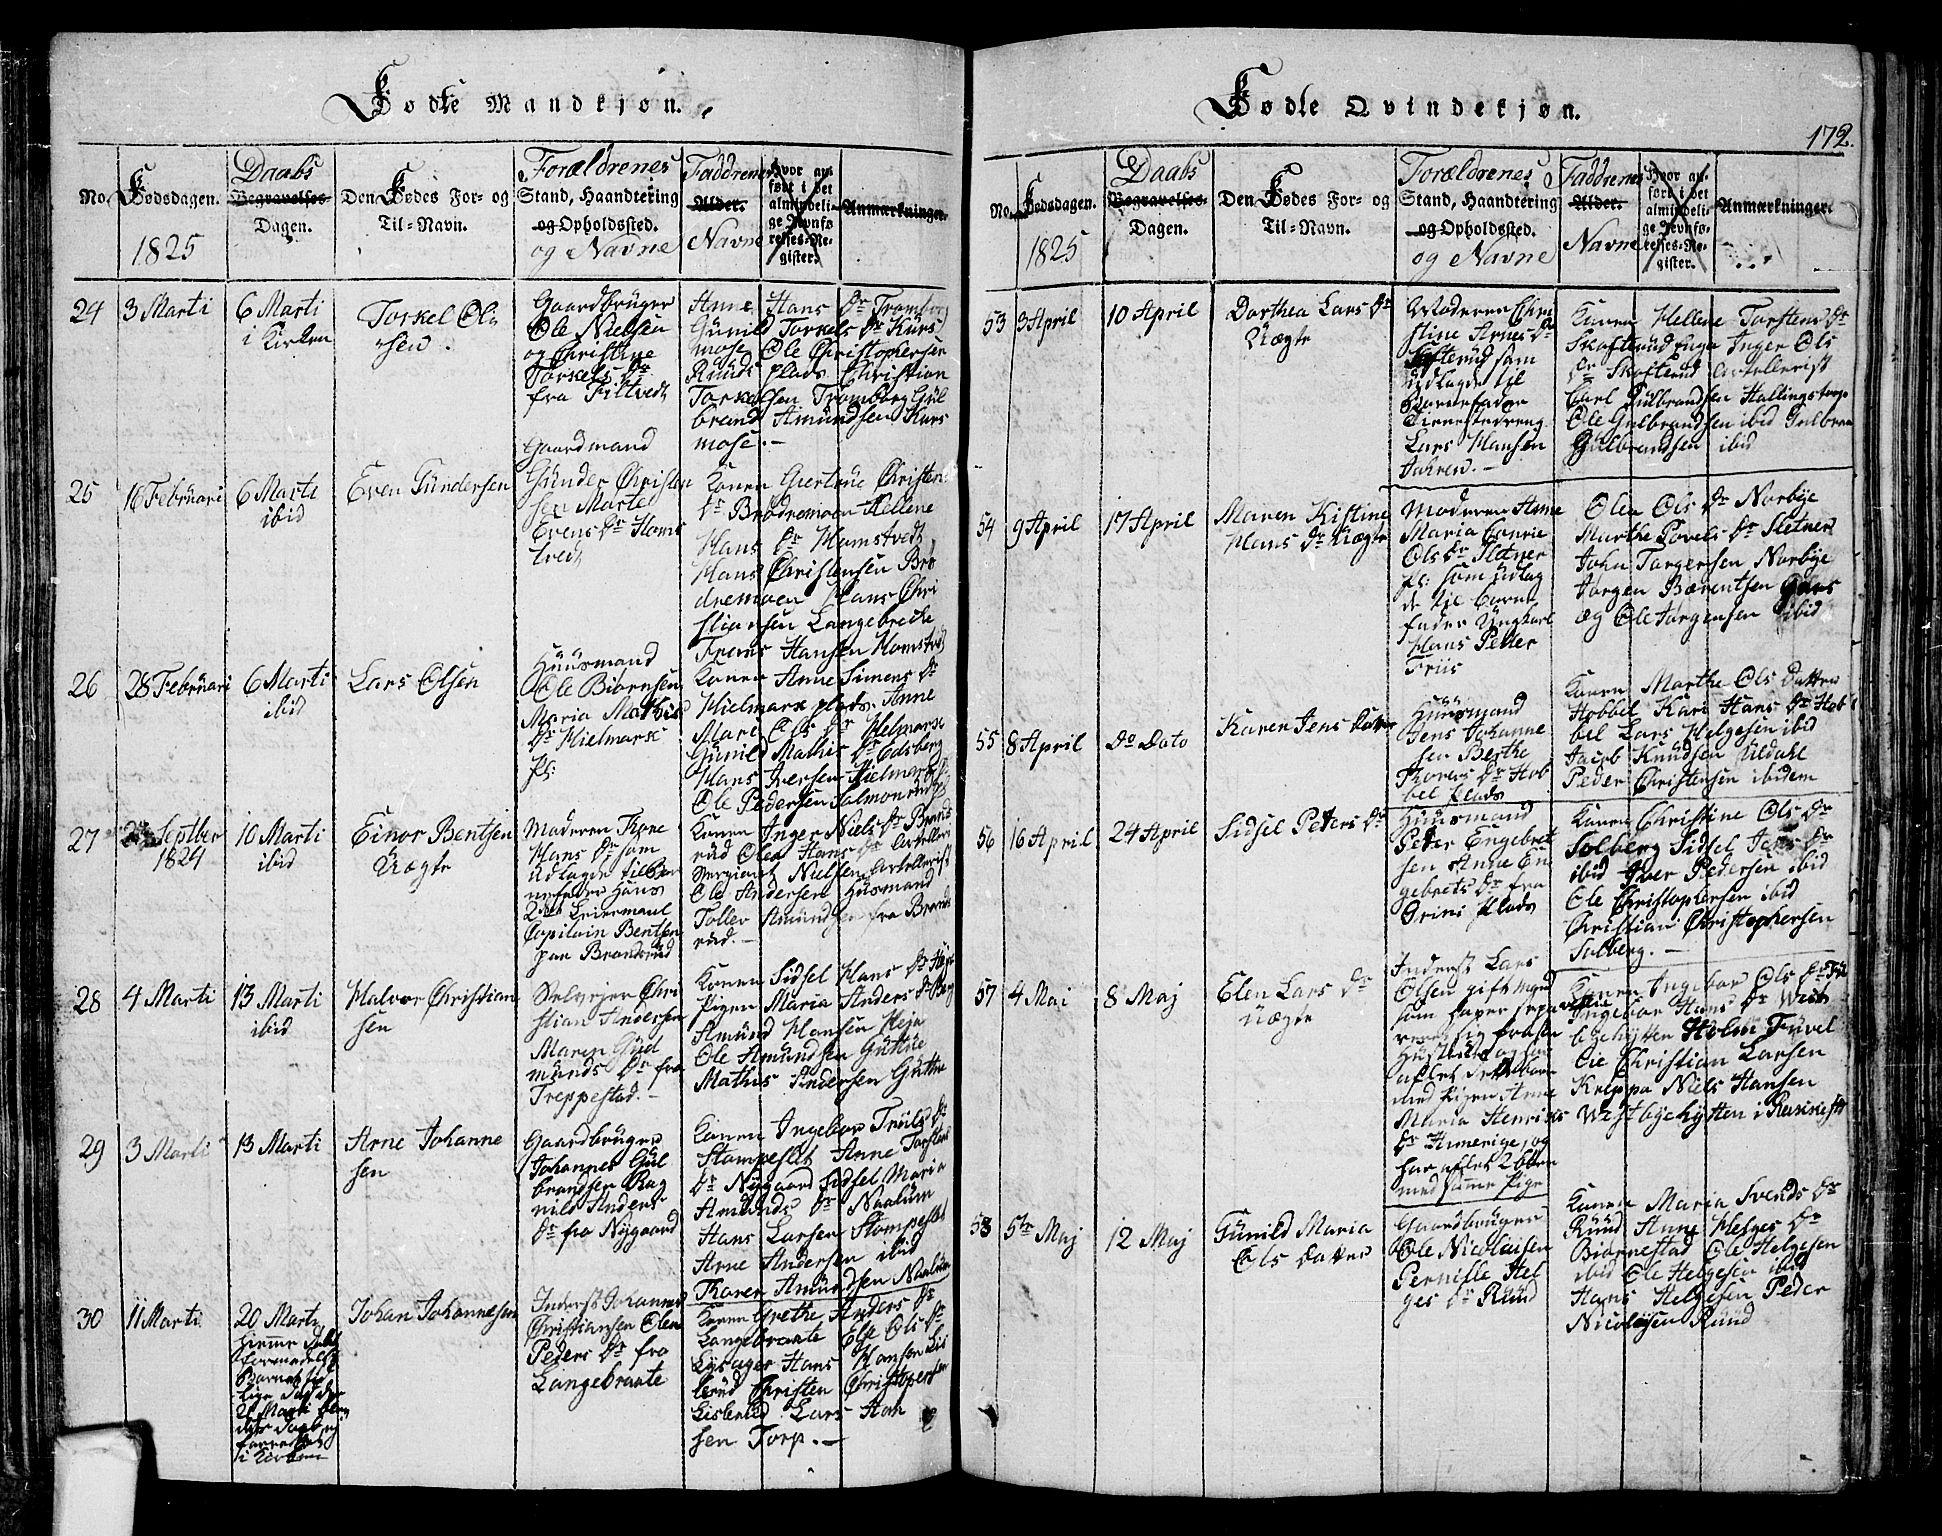 Fødte Mandkjøn.
No.
Fødsdagen.
1825
Daabs
Begravelses-
Dagen.
Den Fødes For- og
Til-Navn.
Forældrenes
Stand, Haandtering
og Opholdssted.
og Navne
Faddrenes
Alder.
Navne
Hvor an-
ført i det
almindeli-
ge Jevnfø-
relses-Re-
gister.
Anmærkninger.
24
3 Marti
6 Marti
i Kirken
Torkel Ole
sen.
Gaardbruger
Ole Nielsen
og Christine
Torkels Dr
fra Filtvedt
Anne Hans Dr Tromborg
Gunild Torkels Dr Kurs
mose Ole Christophersen
Ruuds plads Christian
Torkelsen Tromborg Gul
brand Amundsen Kurs
mose.
25
16 Februari
6 Marti
ibid
Even Gundersen
Gaardmand
Gunder Christen
sen Marte
Evens Dr Homs
tvedt
Konen Giertrue Christens
Dr Brødremoen Hellene
Hans Dr Homstvedt
Hans Christensen Brø
dremoen Hans Chri
stiansen Langebrede
Frants Hansen Homstvedt
26
28 Februari
6 Marti
ibid
Lars Olsen
Huusmand
Ole Biørnsen
Maria Mathis
Dr Hielmark
pl:
Konen Anne Simens Dr
Hielmark plads. Anne
Mari Ols Dr Helmark
Gunild Mathis Dr Edsberg
Hans Iversen Hielmark
Ole Pedersen Salmonrud
27
Septber
1824
10 Marti
ibid
Einor Bentsen
Uægte
Moderen Thone
Hans Dr som
udlagde til Bar
nefader Hans
2det Leiermaal
Capitain Bentsen
paa Brandrud
Konen Inger Niels Dr Brand
rud Olea Hans Dr
Sergiant Nielsen Artellerist
Ole Andersen Husmand
Tollev Amundsen fra Brand
rud.
28
4 Marti
13 Marti
ibid
Halvor Christian
sen
Selvejer Chri
stian Andersen
Maren Gud
munds Dr fra
Treppestad.
Konen Sidsel Hans Dr
Pigen Maria Anders Dr Berg
Amund Hansen Heja
Ole Amundsen Guttue
Mathis Andersen Guttue
29
3 Marti
13 Marti
Arne Johanne
sen
Gaardbruger
Johannes Gul
brandsen Rag
nild Anders
Dr fra Nygaard
Konen Ingebor Truls Dr
Stampeslet Anne Torstens
Dr Nygaard Sidsel Maria
Amunds Dr Naalum
Hans Larsen Stompeslet
Arne Andersen ibid
Thorer Amundsen Naalum
30
11 Marti
20 Marti
Hjemme Døbt
formedelst
i Kirken
Johan Johannesen
Inderst Johannes
Christiansen Olea
Peders Dr fra
Langebraate
Konen Grethe Anders Dr
Langebraate Else Ols Dr
Lysager Hans Hansen Lis
lerud Christen Christopersen
Lislerud Lars Han
sen Torp.
Fødte Qvindekjøn.
172.
No.
Fødsdagen.
1825
Daabs
Begravelses-
Dagen.
Den Fødes For- og
Til-Navn.
Forældrenes
Stand, Haandtering
og Opholdssted.
og Navne
Faddrenes
Alder.
Navne
Hvor an-
ført i det
almindeli-
ge Jevnfø-
relses-Re-
gister.
Anmærkninger.
53
3 April
10 April
Dorthea Lars Dr
Uægte
Moderen Chri
stine Arnes Dr
Skofterud som
udlagde til
Barnefader
Lars Hansen
Jahren.
Konen Hellene Torstens Dr
Skofterud Inger Ols
Dr Skofterud Artellerist
Carl Gulbrandsen Hallingstorp
Ole Gulbrandsen ibid Gulbran
Gulbrandsen ibid
54
9 April
17 April
Maren Kistine
Hans Dr Uægte
Moderen Anne
Maria
Ols Dr Sletner
pl: som udlag
de til Barne
fader Ungkarl
Hans Peder
Friis
Olea Ols Dr Norbye
Marthe Povels Dr Sletner
John Torgersen Norbye
Jørgen Bærentsen
og Ole Jørgensen ibid
55
8 April
Do Dato
Karen Jens Datter
Huusmand
Jens Johanne
sen Berthe
Thorers Dr Hob
bel plads
Konen Marthe Ols Datter
Hobbel Kari Hans Dr Hob
bel Lars Helgesen ibid
Jacob Knudsen Uldahl
Peder Christensen ibidem
56
16 April
24 April
Sidsel Peters Dr
Huusmand
Peter Engebret
sen Anne En
gebrets Dr fra
Grini plads
Konen Christine Ols Dr
Solberg Sidsel Jens Dr
ibid Iver Pedersen ibid
Ole Christophersen ibid
Christian Christophersen
Solberg.
57
4 Mai
8 Maj
Elen Lars Dr
Uægte
Inderst Lars
Olsen gift mand
som haver sepa
reret sig fra sin
Hustrue og har
aflet dette barn
med Pigen Anne
Maria Henriks
Dr Homerige, og
har aflet 2 børn
med samme Pige
Konen Ingebor Ols Dr
Ingebor Hans Dr West
byehytten Holm Tuvel
Ole Christian Larsen
Kreppa Niels Hansen
Westbyehytten i
58
5te Maj
12 Maj
Gunild Maria
Ols Datter
Gaardbruger
Ole Nicolaisen
Pernille Hel
ges Dr Ruud
Konen Maria Svends Dr
Ruud Anne Helges Dr
Biørnestad Ole Helgesen
ibid Ole Helgesen ibid
Hans Helgesen Peder
Nicolaisen Ruud